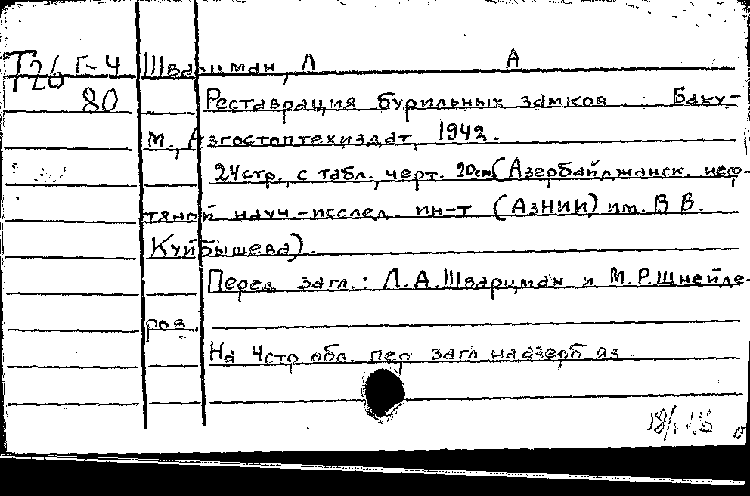 Т26 Г-4 Шварцман, Л А
80 Реставрация бурильных замков. Баку-
М., Азгостоптехиздат, 1942.
24 стр., с табл., черт. 20см (Азербайджанск. неф-
тяной науч.-исслед. ин-т (АзНИИ) им. В В.
Куйбышева).
Перед загл.: Л.А.Шварцман и М.Р.Шнейде-
ров
На 4 стр обл. пер загл на азерб яз